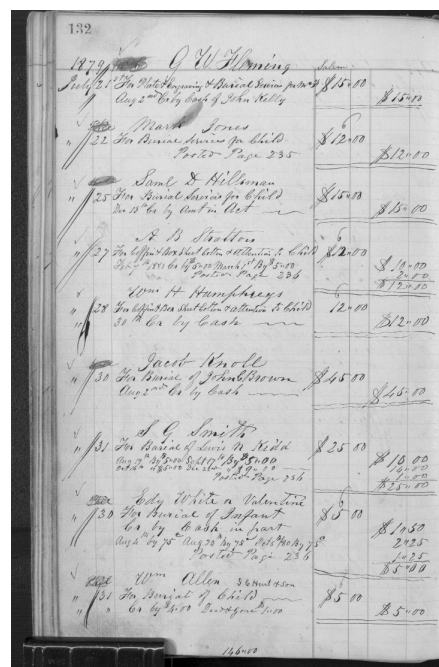 132
1879 G W Fleming
July 21st For Plate Engraving & Burial Services for $15.00
Aug 2nd Cr by Cash of John Kelly $15.00
Mark Jones
" 22 For Burial Services for Child $12.00
Posted Page 235 $12.00
Saml D Hillsman
" 25 For Burial Services for Child $15.00
Dec 13th Cr by Amt in Act $15.00
A B Stratton
" 27 For Coffin & Box Shirt Coton & attention to Child $12.00
1881 Cr by $5.00 March 1st By $5.00 $10.00
Posted Page 236 2.00
$12.00
Wm H Humphreys
" 28 For Coffin & Box Shirt Coton & attention to Child 12.00
" 30th Cr by Cash $12.00
Jacob Knoll
" 30 For Burial of John Brown $45.00
Aug 2nd Cr by Cash $45.00
S G Smith
" 31 For Burial of Lewis N Kidd $25.00
Aug 19th by $5.00 Sept 17th By $5.00 $10.00
14.00
Posted Page 236 1.00
$25.00
Edy White or Valentine
" 30 For Burial of Infant $5.00
Cr by Cash in part $1.50
Aug 4th by 75c Aug 20th by 75c Oct By 75c 2.25
Posted Page 236 1.25
$5.00
Wm Allen
" 31 For Burial of Child $5.00
" " Cr by $4.00 1.00 $5.00
146.00